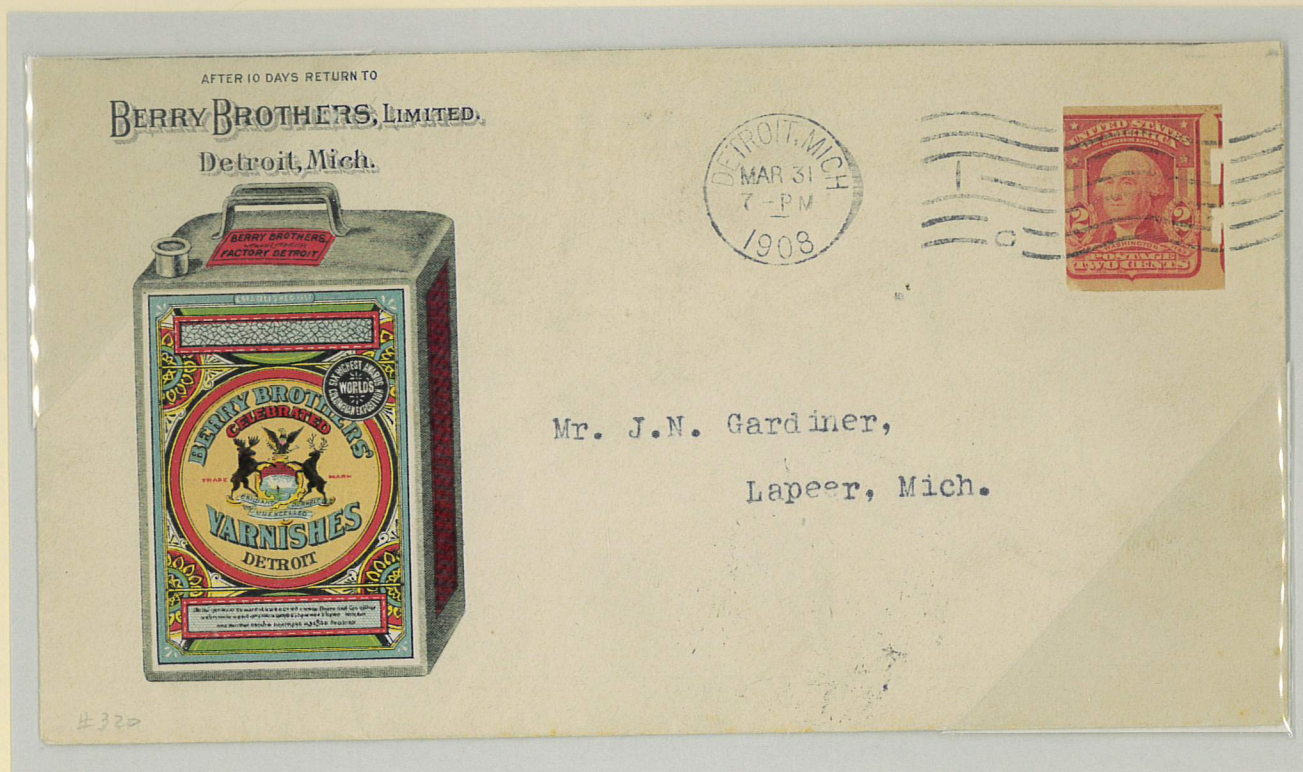 AFTER 10 DAYS RETURN TO
BERRY BROTHERS, LIMITED.
Detroit, Mich.
BERRY BROTHERS,
FACTORY DETROIT
SIX HIGHEST AWARDS
WORLDS
COLUMBIAN EXPOSITION
BERRY BROTHERS'
CELEBRATED
TRADE MARK
VARNISHES
DETROIT
DETROIT, MICH
MAR 31
7 - PM
1908
1
UNITED STATES
OF AMERICA
2 2
WASHINGTON
POSTAGE
TWO CENTS
Mr. J.N. Gardiner,
Lapeer, Mich.
#320